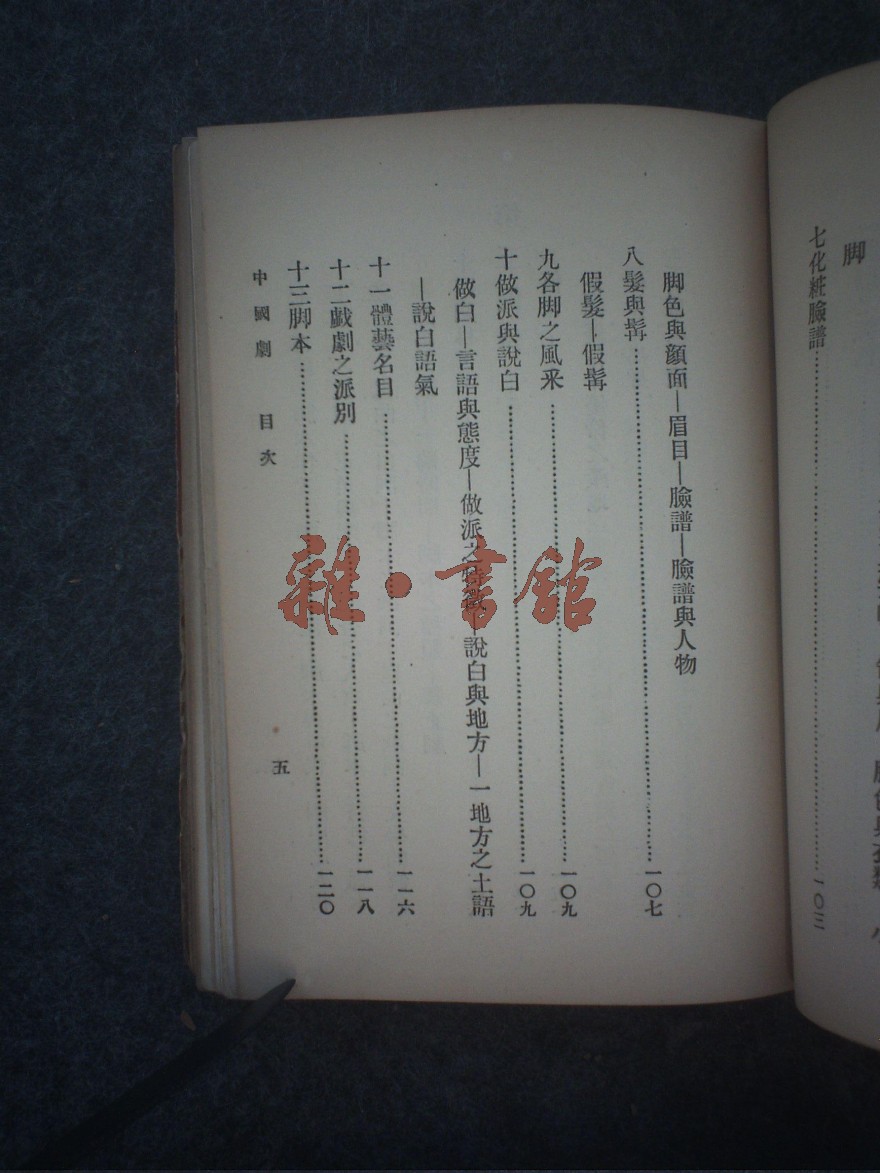 脚
七化粧臉譜……一〇三
脚色與顏面—眉目—臉譜—臉譜與人物
八髮與髯……一〇七
假髮—假髯
九各脚之風采……一〇九
十做派與說白……一〇九
做白—言語與態度—做派之特徵—說白與地方—一地方之土語
—說白語氣
十一體藝名目……一一六
十二戲劇之派別……一一八
十三脚本……一二〇
中國劇 目次 五
雜·書館